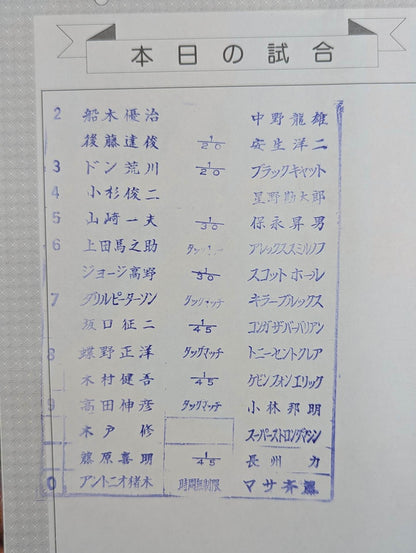 本日の試合
2 船木優治 中野龍雄
後藤達俊 1/20 安生洋二
3 ドン荒川 1/20 ブラックキャット
4 小杉俊二 星野勘太郎
5 山崎一夫 1/30 保永昇男
6 上田馬之助 タッグ アレックススミルノフ
ジョージ高野 1/30 スコットホール
7 グリルピーターソン タッグマッチ キラーブルックス
坂口征二 1/45 コンガザバーバリアン
8 蝶野正洋 タッグマッチ トニーセントクレア
木村健吾 1/45 ケビンフォンエリック
9 高田伸彦 タッグマッチ 小林邦明
木戸修 スーパーストロングマシン
藤原喜明 1/45 長州力
0 アントニオ猪木 時間無制限 マサ斉藤